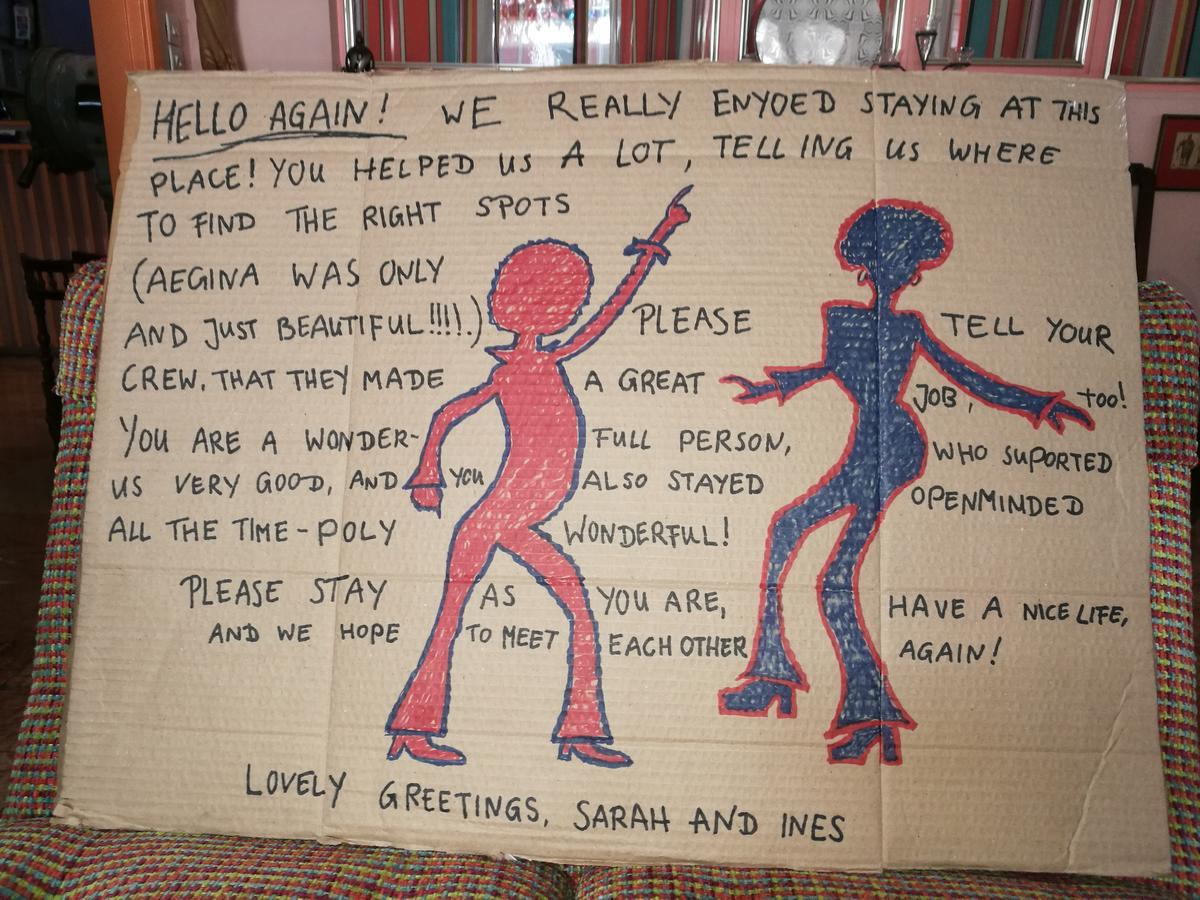 HELLO AGAIN! WE REALLY ENYOED STAYING AT THIS
PLACE! YOU HELPED US A LOT, TELLING US WHERE
TO FIND THE RIGHT SPOTS
(AEGINA WAS ONLY
AND JUST BEAUTIFUL!!!!.) PLEASE TELL YOUR
CREW, THAT THEY MADE A GREAT JOB, TOO!
YOU ARE A WONDER- FULL PERSON, WHO SUPORTED
US VERY GOOD, AND YOU ALSO STAYED OPENMINDED
ALL THE TIME - POLY WONDERFUL!
PLEASE STAY AS YOU ARE, HAVE A NICE LIFE,
AND WE HOPE TO MEET EACH OTHER AGAIN!
LOVELY GREETINGS, SARAH AND INES